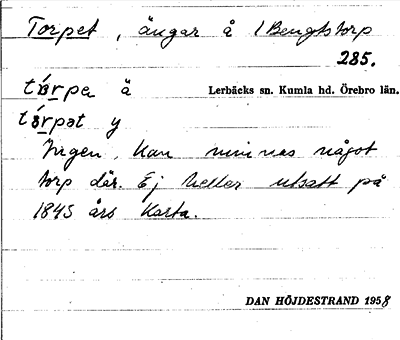 Torpet, ängar å 1 Bengtstorp
285.
tɷ́rpa ä
Lerbäcks sn. Kumla hd. Örebro län.
tɷ́rpət y
Ingen kan minnas något
torp där. Ej heller utsatt på
1845 års karta.
DAN HÖJDESTRAND 1958